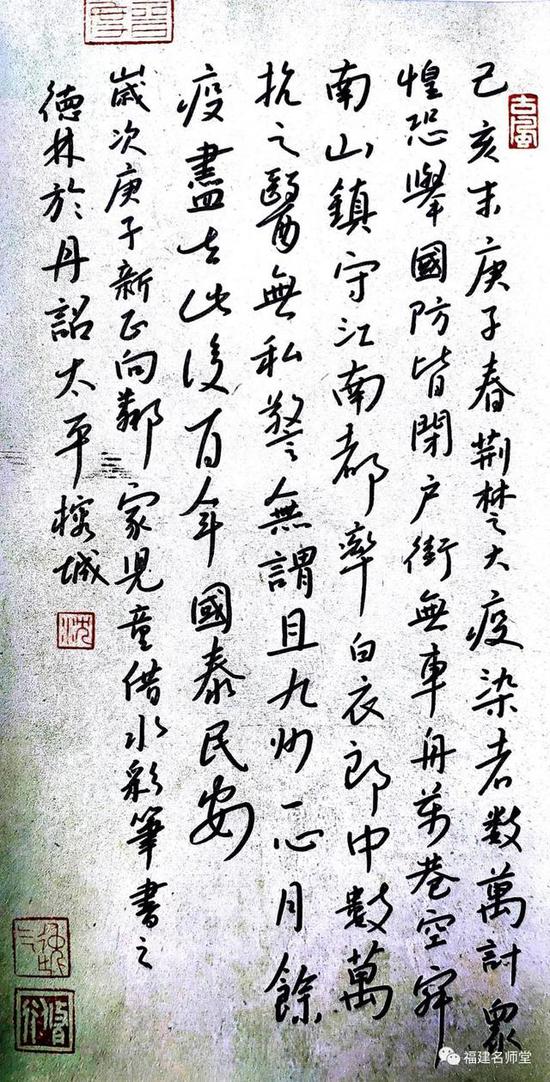 己亥末庚子春荆楚大疫染者数萬計眾
惶恐舉國防皆閉户街無車舟萬巷空寂
南山鎮守江南都率白衣郎中数萬
抗之醫無私警無謂且九州一心月餘
疫盡去此後百年國泰民安
歲次庚子新正向鄰家兒童借水彩筆書之
德林於丹詔太平榕城
古風
沈
福建名师堂